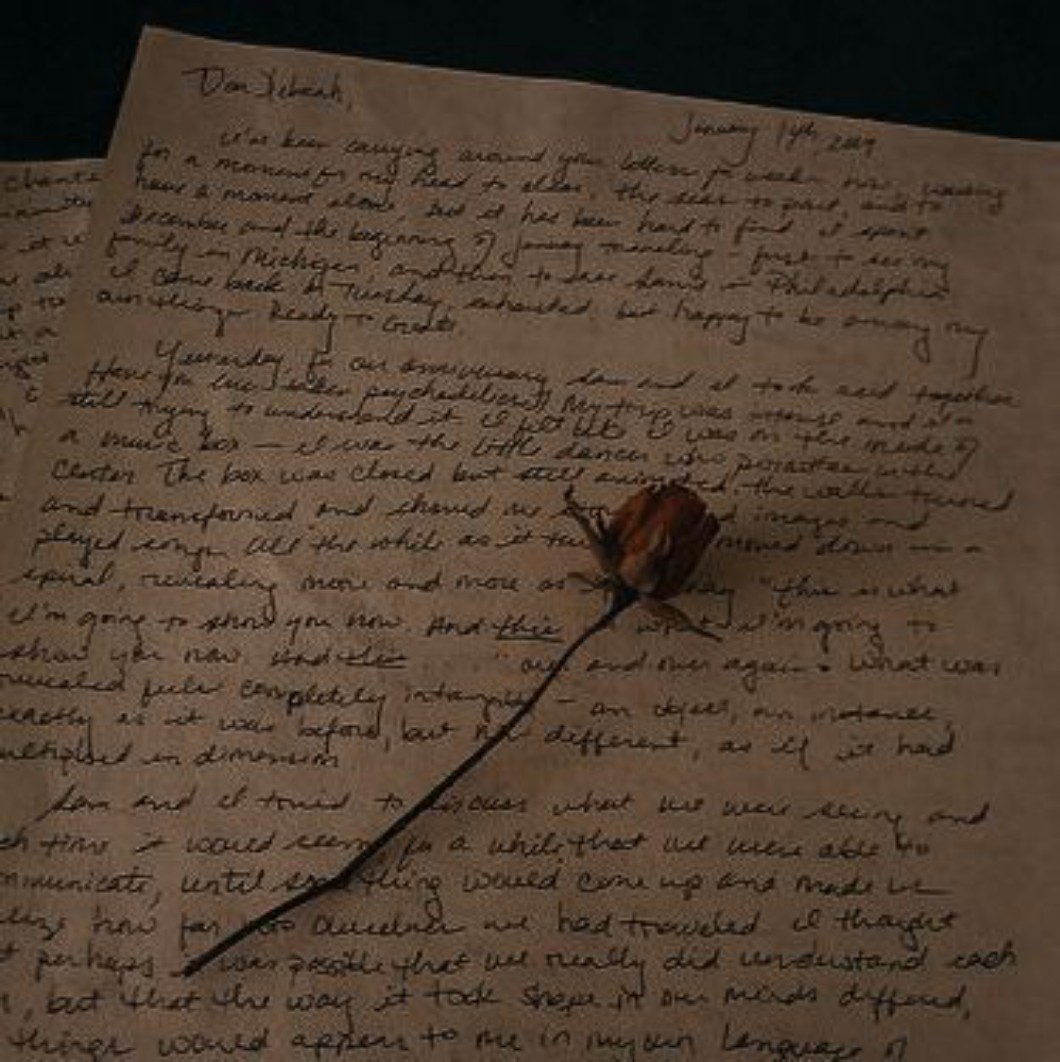 chance
Dear
January 14th, 2009
I've been carrying around your letter for weeks now, waiting
for a moment for my head to clear, the seas to part, and to
have a moment alone, but it has been hard to find. I spent
December and the beginning of January traveling - first to see my
family in Michigan, and then to see Sam's in Philadelphia
I came back on Tuesday, exhausted, but happy to be among my
own things. Ready to create.
Yesterday for our anniversary Sam and I took acid together
Have you ever taken psychedelics? My trip was intense and I'm
still trying to understand it. I felt like I was on the inside of
a music box — I was the little dancer who pirouettes in the
center. The box was closed but still animated. The walls turned
and transformed and showed me images and
played songs. All the while as it moved down in a
spiral, revealing more and more as "this is what
I'm going to show you now. And this is what I'm going to
show you now. And this " over and over again. What was
revealed feels completely intangible – an object, an instance,
exactly as it was before, but now different, as if it had
multiplied in dimension
Sam and I tried to discuss what we were seeing and
each time it would seem for a while that we were able to
communicate, until something would come up and made us
realize how far into ourselves we had traveled. I thought
that perhaps it was possible that we really did understand each
, but that the way it took shape in our minds differed,
things would appear to me in my own language of